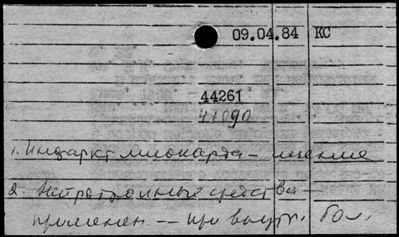 09.04.84 КС
44261
47090
1. Инфаркт миокарда – лечение
2. Нейротропные средства –
примен. – при внутр. бол.